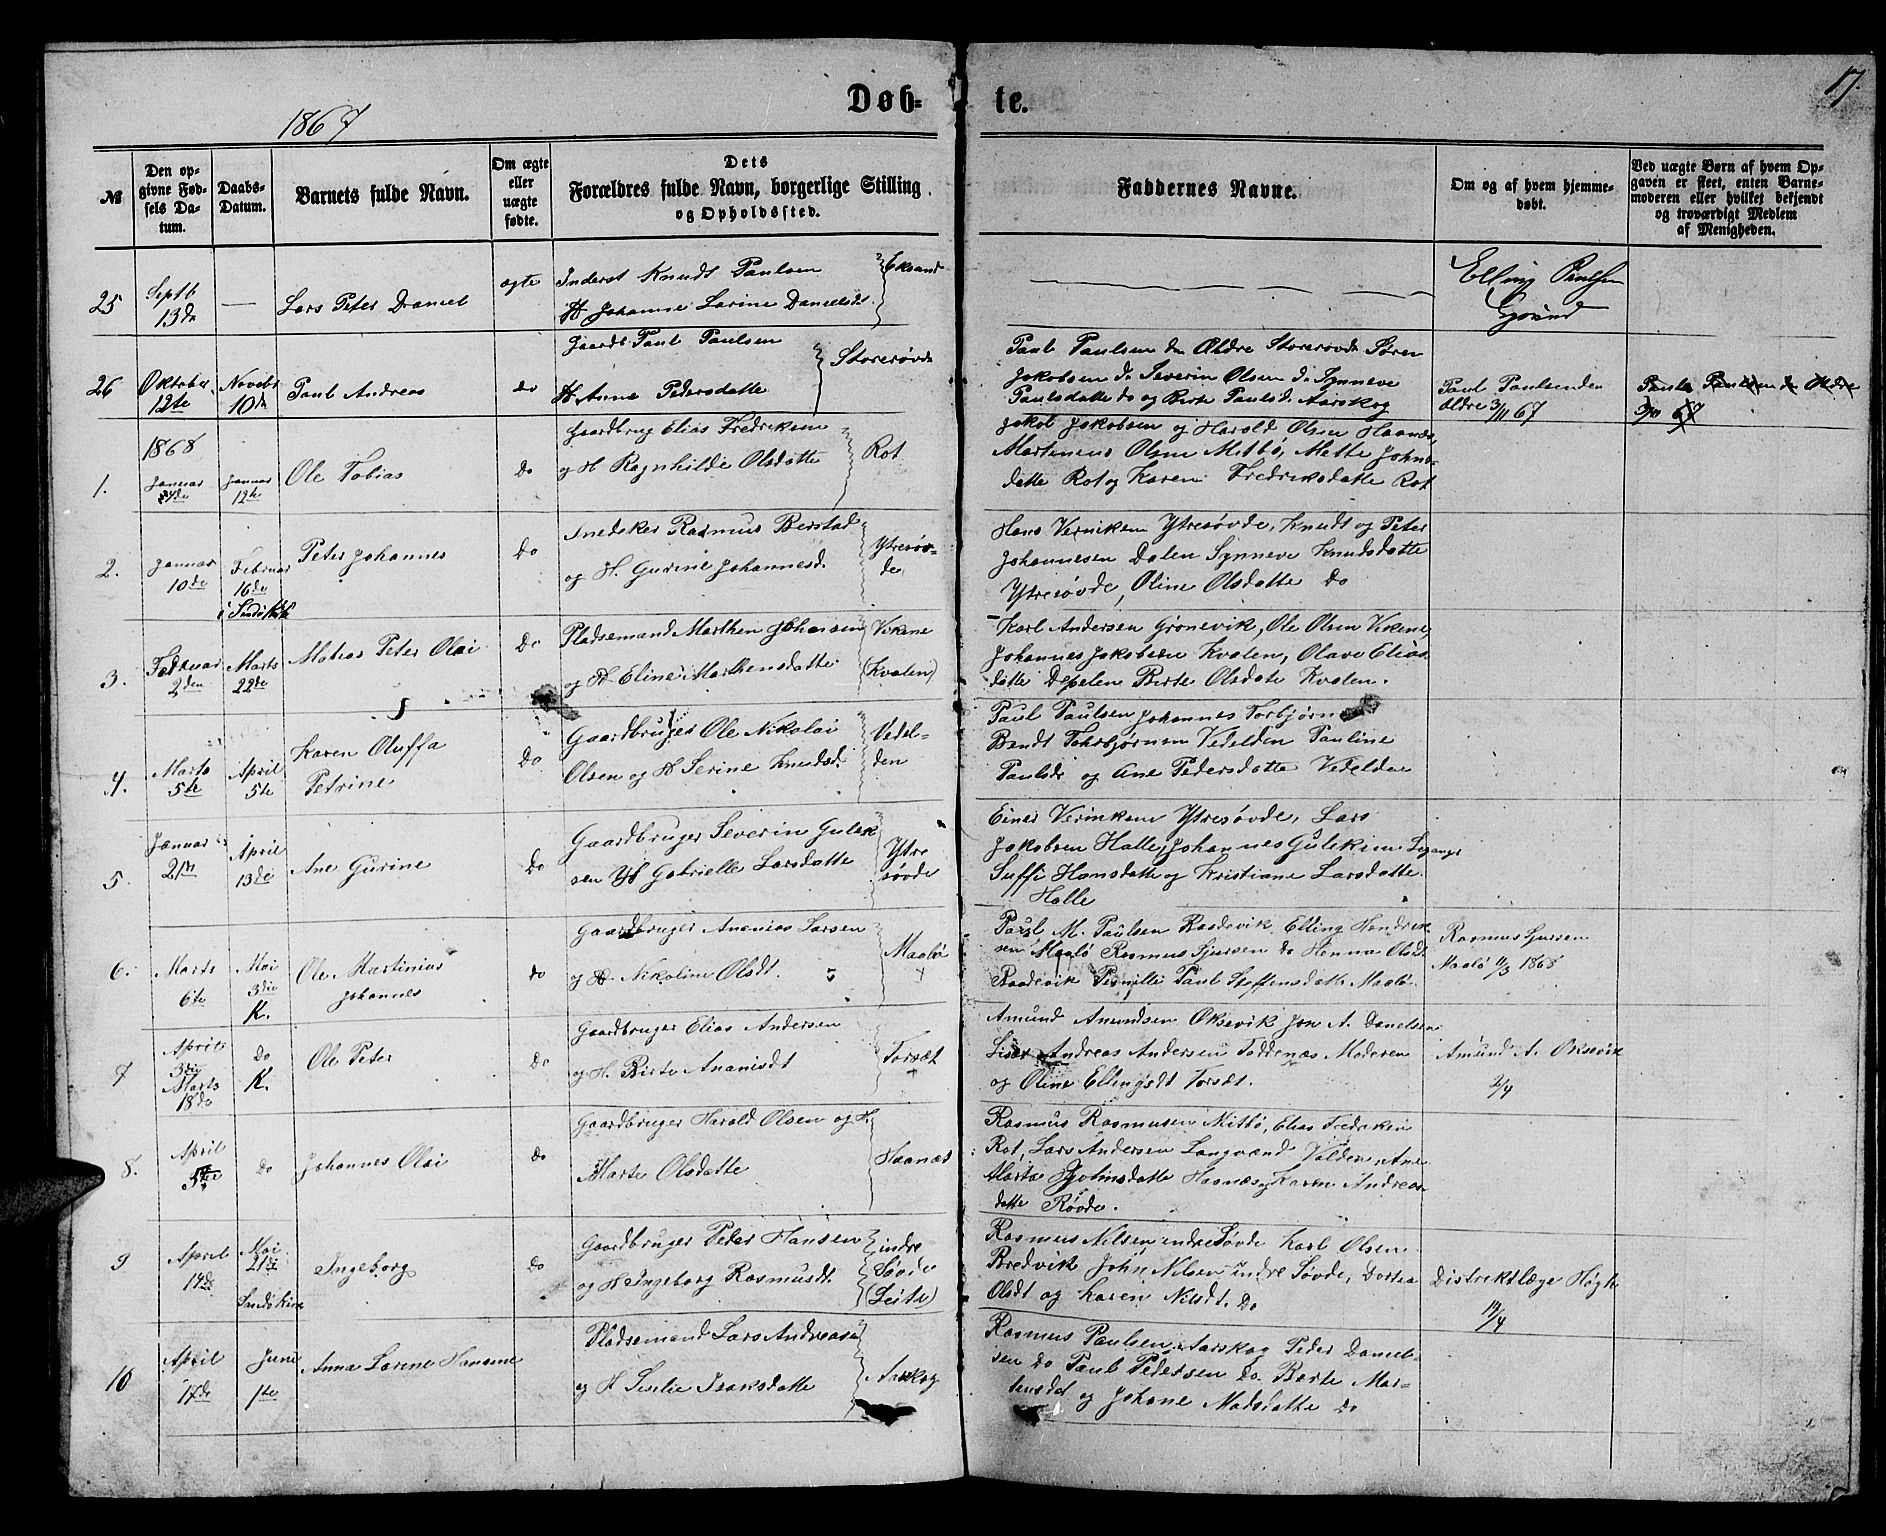 17.
Døb-
te.
1867
№
Den op-
givne Fød-
sels Da-
tum.
Daabs-
Datum.
Barnets fulde Navn.
Om ægte
eller
uægte
fødte.
Dets
Forældres fulde Navn, borgerlige Stilling
og Opholdssted.
Faddernes Navne.
Om og af hvem hjemme-
døbt.
Ved uægte Børn af hvem Op-
gaven er skeet, enten Barne-
moderen eller hvilket bekjendt
og troværdigt Medlem
af Menigheden.
25
Septb
13de
—
Lars Peter Daniel
ægte
Inderst Knudt Paulsen
H Johanne Larine Danielsdt.
Eksand
Elling Paulsen
26
Oktober
12te
Novebr
10de
Paul Andreas
do
Gaardb Paul Paulsen
H Anne Pedersdatte
Storesøvde
Paul Paulsen den Ældre Storesøvde Søren
Jakobsen do Severin Olsen do Synneve
Paulsdatte do og Birte Paulsd. Aarskog
Paul Paulsen den
ældre 3/11 67
Paul Paulsen den Ældre
3/11 67
1868
1.
Januar
Januar
12te
Ole Tobias
Do
Gaardbrug Elias Fredriksen
og H Ragnhilde Olsdatte
Rot
Jakob Jakobsen og Harold Olsen Haanes,
Martinus Olsen Mitbø, Mette Johns-
datte Rot og Karen Fredriksdatte Rot
2.
Januar
10de
Februar
16de
Peter Johannes
Do
Snedeker Rasmus Berstad
og H. Gurine Johannesd.
Ytresøv-
de
Hans Veriksen Ytresøvde, Knudt og Peter
Johannesen Dalen Synneve Knudsdatte
Ytresøvde, Oline Olsdatte Do
3.
Februar
2den
Marts
22de
Matias Peter Olai
Do
Pladsemand Marthen Johansen
og H Eline Marthensdatte
Vikene
(Kvalen)
Karl Andersen Grønevik, Ole Olsen Vikene,
Johannes Jakobsen Kvalen, Olave Elias
datte Depelen Birte Olsdate Kvalen.
4.
Marts
5te
April
5te
Karen Oluffa
Petrine
Do
Gaardbruger Ole Nikolai
Olsen og H Serine Knudsd.
Vedel-
den
Paul Paulsen Johannes Torbjørn
Bendt Torbjørnsen Vedelden Pauline
Paulsd. og Ane Pedersdatte Vedelden
5.
Januar
21de
April
13de
Ane Gurine
Do
Gaardbruger Severin Gulek
sen H Gabrielle Larsdatte
Ytre
søvde
Einer Veriksen Ytresøvde, Lars
Jakobsen Halle, Johannes Guleksen
Suffi Hansdatte og Kristiane Larsdatte
Halle
6.
Marts
6te
Mai
3die
K.
Ole Martinius
Johannes
do
Gaardbruger Ananias Larsen
og H. Nikoline Olsdt.
Maalø
Paul M. Paulsen Raadevik, Elling Hendrik
sen Maalø Rasmus Sjursen do Henna Olsd.
Raadevik Pernille Paul Steffensdatte Maalø.
Rasmus Sjursen
Maalø 11/3 1868
7
April
3die
Marts
18de
Do
K.
Ole Peter
Do
Gaardbruger Elias Andersen
og H. Birte Ananisdt
Torsæt
Amund Amundsen Oksevik Jon A. Danielsen
Andreas Andersen Toddenæs Moderen
og Oline Ellingsdt Torsæt.
Amund A. Oksevik
2/4
8.
April
Do
Johannes Olai
Do
Gaardbruger Harold Olsen og H.
Marte Olsdatte
Haanæs
Rasmus Rasmusen Mitbø, Elias Fredriksen
Rot, Lars Andersen Langvand Volden, Ane
Marta Johnsdatte Haanæs og Karen Andreas
datte Røvde.
9
April
Mai
21de
Ingeborg
Do
Gaardbruger Peder Hansen
og H Ingeborg Rasmusdt.
indre
Søvde
(Leite)
Rasmus Nilsen indre Søvde Karl Olsen
Bredvik John Nilsen indre Søvde, Dortea
Olsdt og Karen Nilsdt. Do
Distriktlæge Høgh
10
April
17de
Juni
1te
Anna Larine Hansine
Pladsemand Lars Andreasen
og H Seselie Isaksdatte
Aarskog
Rasmus Paulsen, Aarskog Peder Daniel-
sen do Paul Pedersen Do. Berte Mar-
tensdt og Johane Madsdatte Do